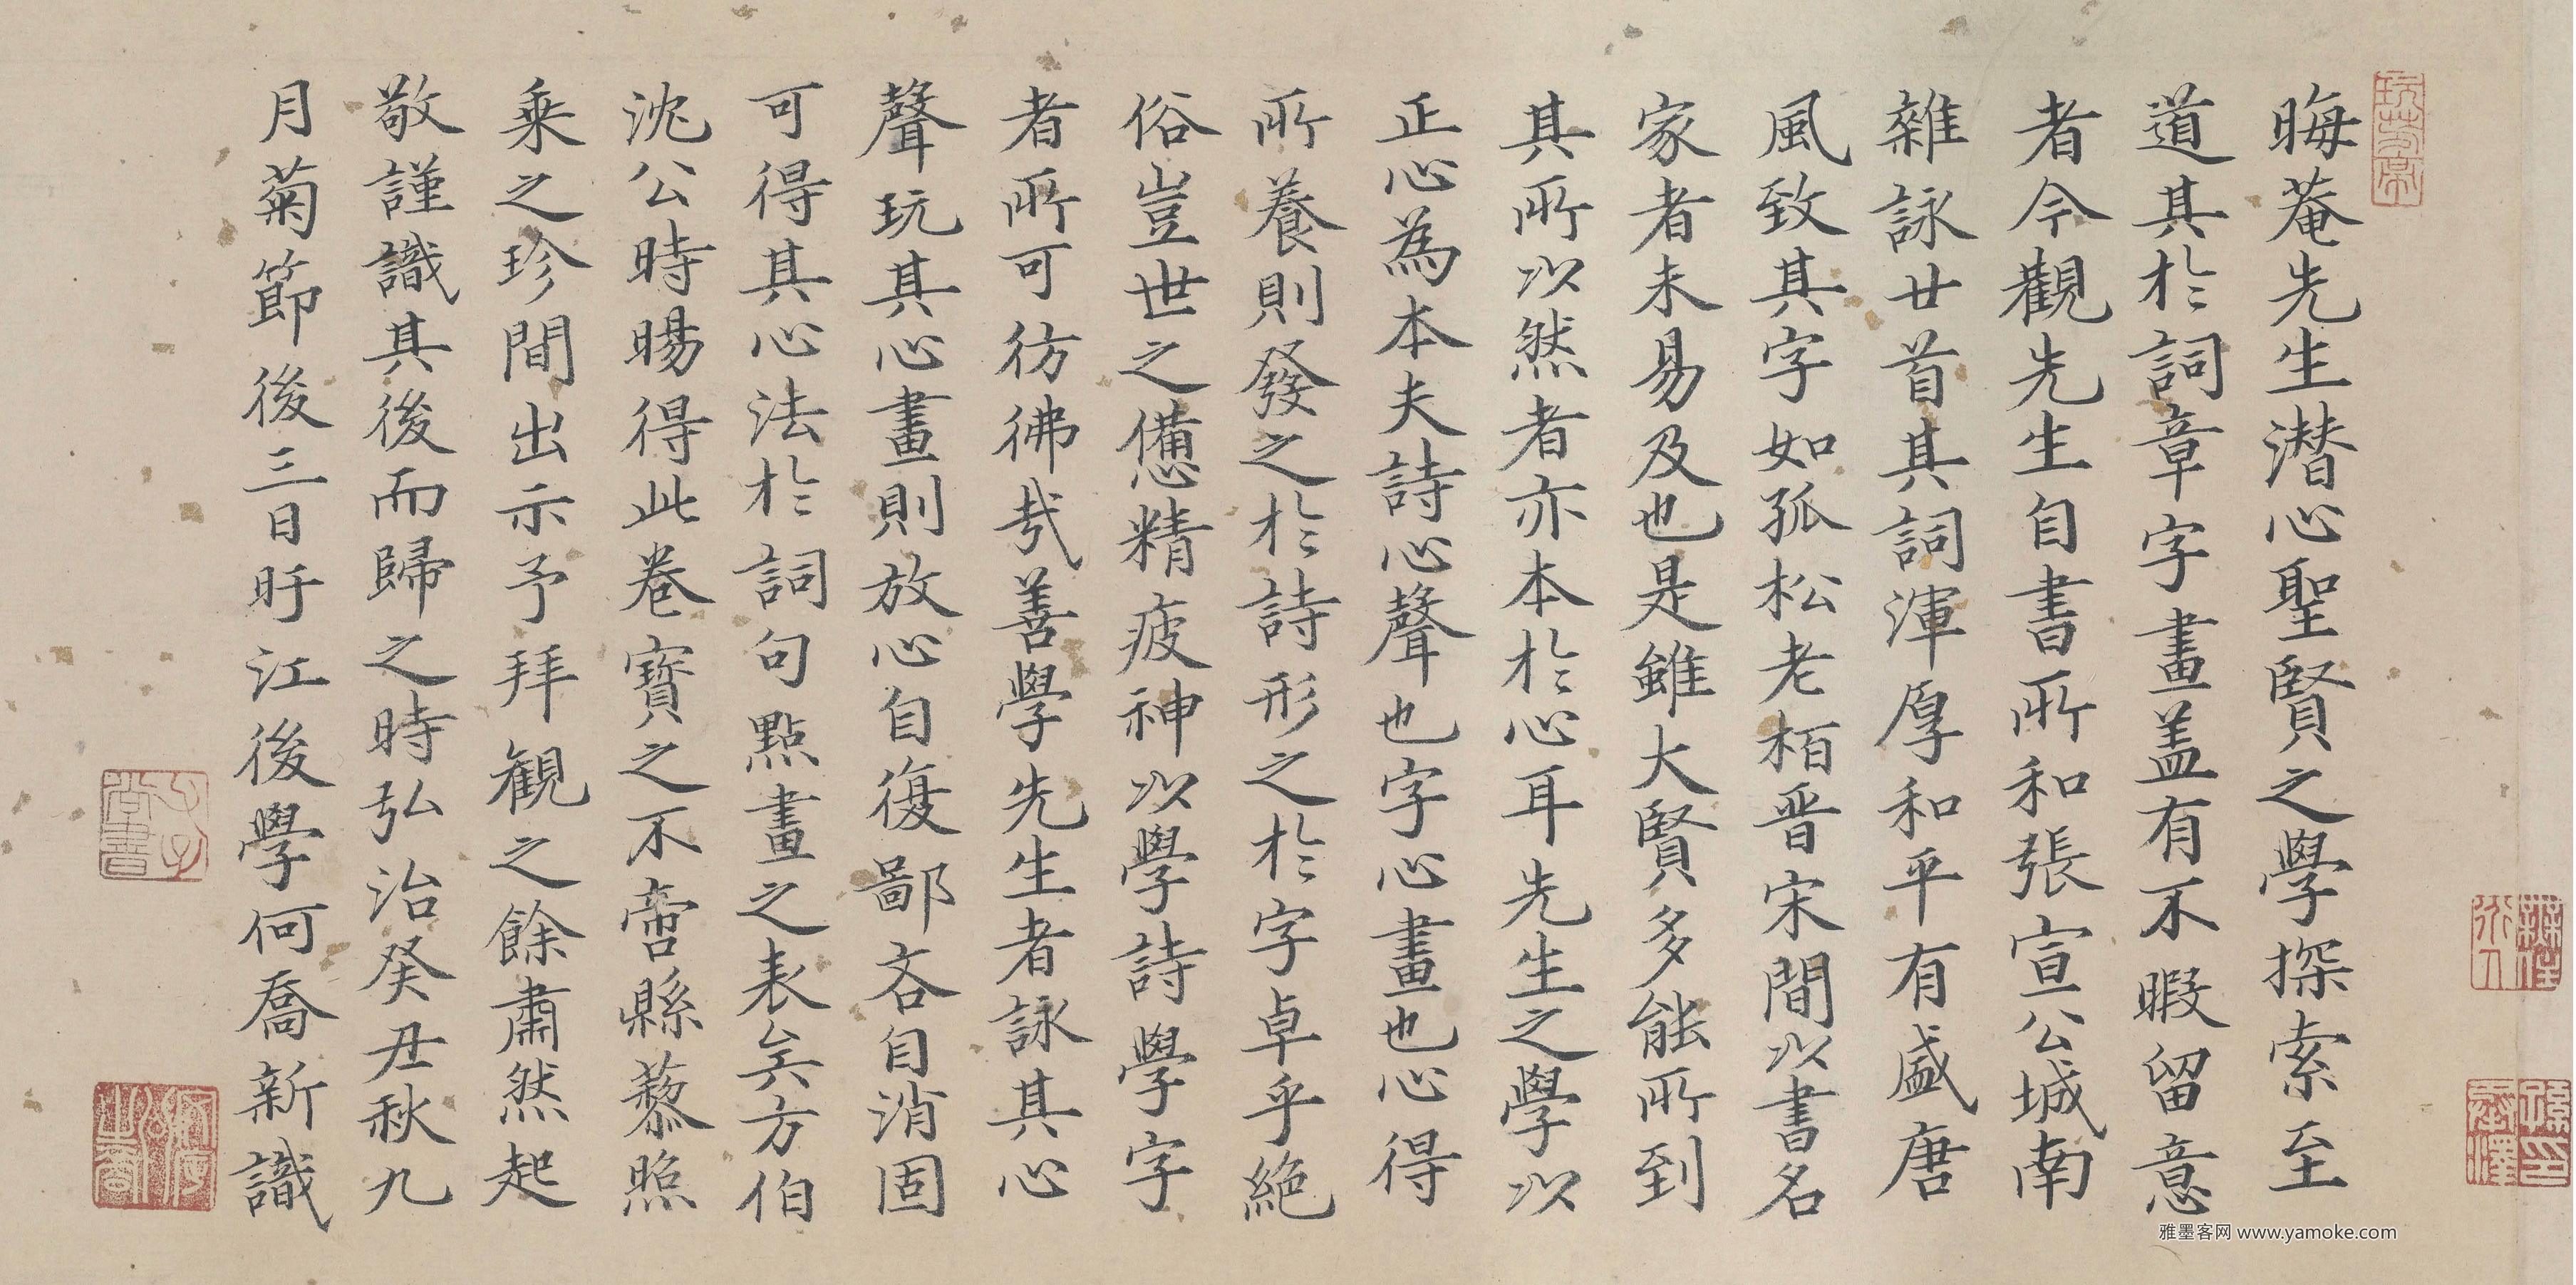 晦菴先生潛心聖賢之學探索至
道其於詞章字畫盖有不暇留意
者今觀先生自書所和張宣公城南
雜詠廿首其詞渾厚和平有盛唐
風致其字如孤松老栢晋宋間以書名
家者未易及也是雖大賢多能所到
其所以然者亦本於心耳先生之學以
正心為本夫詩心聲也字心畫也心得
所養則發之於詩形之於字卓乎絕
俗豈世之憊精疲神以學詩學字
者所可彷彿哉善學先生者詠其心
聲玩其心畫則放心自復鄙吝自消固
可得其心法於詞句點畫之表矣方伯
沈公時暘得此卷寶之不啻縣藜照
乘之珍間出示予拜觀之餘肅然起
敬謹識其後而歸之時弘治癸丑秋九
月菊節後三日盱江後學何喬新識
雅墨客网 www.yamoke.com